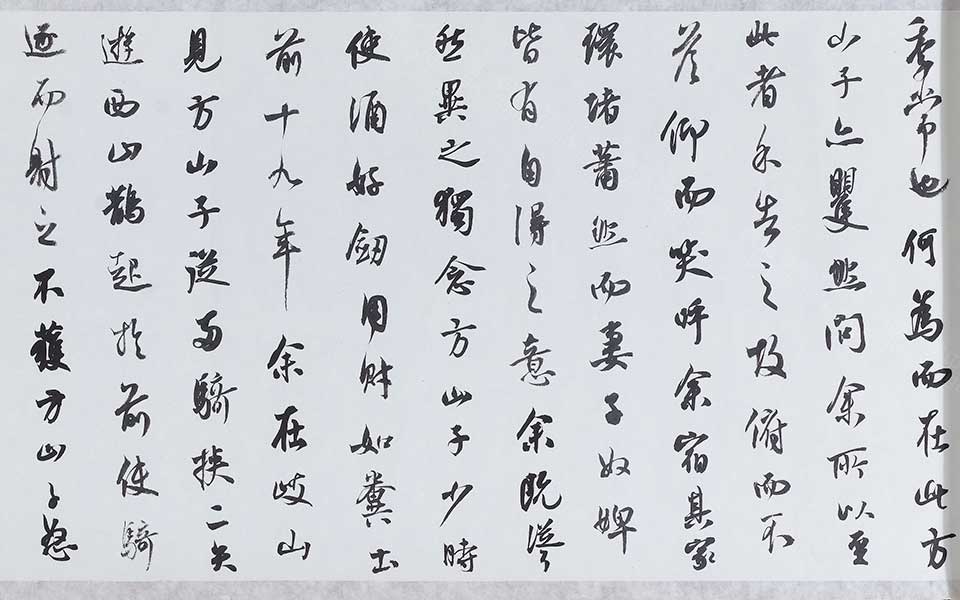 季常也何為而在此方
山子亦矍然問余所以至
此者余告之故俯而不
答仰而笑呼余宿其家
環堵蕭然而妻子奴婢
皆有自得之意余既聳
然異之獨念方山子少時
使酒好劒用財如糞土
前十九年余在岐山
見方山子從兩騎挾二矢
遊西山鵲起於前使騎
逐而射之不獲方山子怒